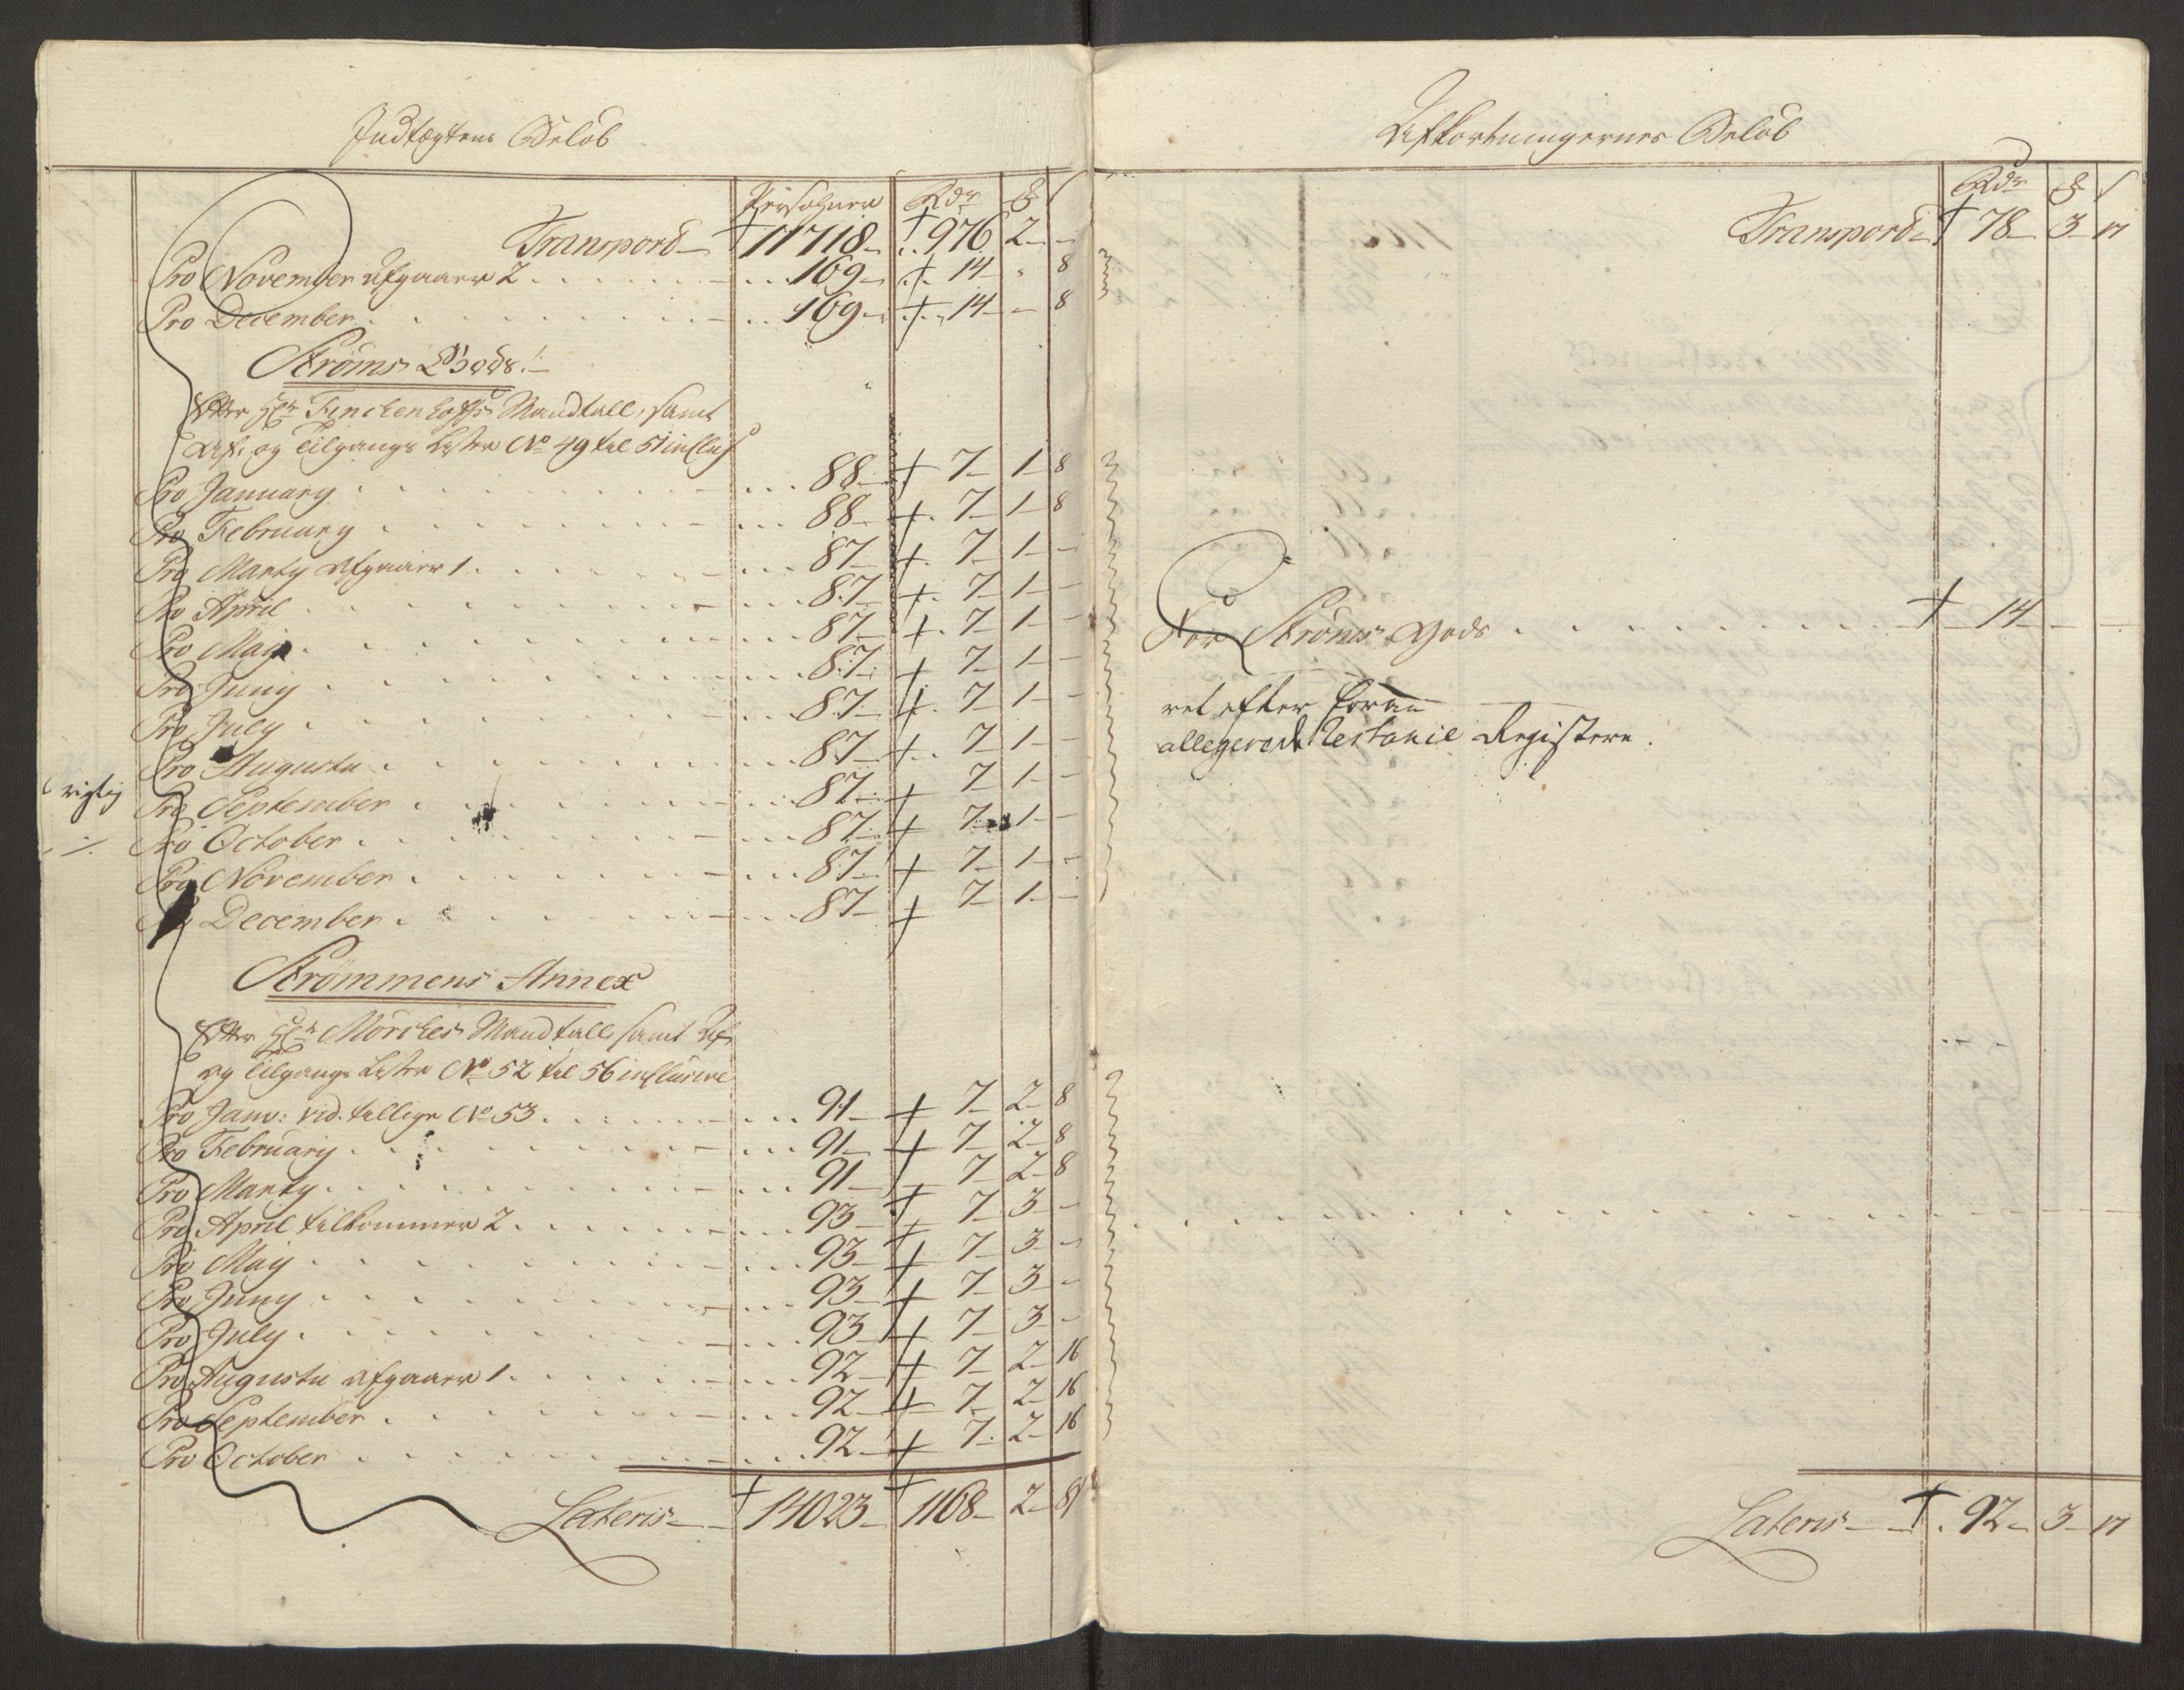 Indtægtens Beløb
Persohner Rdr ß
Transpord 11718 976 2 -
Pro November afgaaer 2 . . . 169 14 - 8
Pro December . . . 169 14 - 8
Strøms Gods
Efter Hr Finckenhoffs Mandtall, samt
Af- og Tilgangs Lister No 49 til 51 inclus
Pro January . . . 88 7 1 8
Pro February . . . 88 7 1 8
Pro Marty afgaaer 1 . . . 87 7 1 -
Pro April . . . 87 7 1 -
Pro Maij . . . 87 7 1 -
Pro Juny . . . 87 7 1 -
Pro July . . . 87 7 1 -
Pro Augusti . . . 87 7 1 -
rigtig
Pro September . . . 87 7 1 -
Pro October . . . 87 7 1 -
Pro November . . . 87 7 1 -
Pro December . . . 87 7 1 -
Strømmens Annex
Efter Hr Mørches Mandtall, samt Af-
og Tilgangs Lister No 52 til 56 inclusive
Pro Janv: vid. tillige No 53 . . . 91 7 2 8
Pro February . . . 91 7 2 8
Pro Marty . . . 91 7 2 8
Pro April tilkommer 2 . . . 93 7 3 -
Pro Maij . . . 93 7 3 -
Pro Juny . . . 93 7 3 -
Pro July . . . 93 7 3 -
Pro Augusti afgaaer 1 . . . 92 7 2 16
Pro September . . . 92 7 2 16
Pro October . . . 92 7 2 16
Lateris 14023 1168 2 8
Afkortningernes Beløb
Rdr ß
Transpord 78 3 17
For Strøms Gods . . . 14 - -
ret efter foran
allegerede Restantie Registere.
Lateris 92 3 17